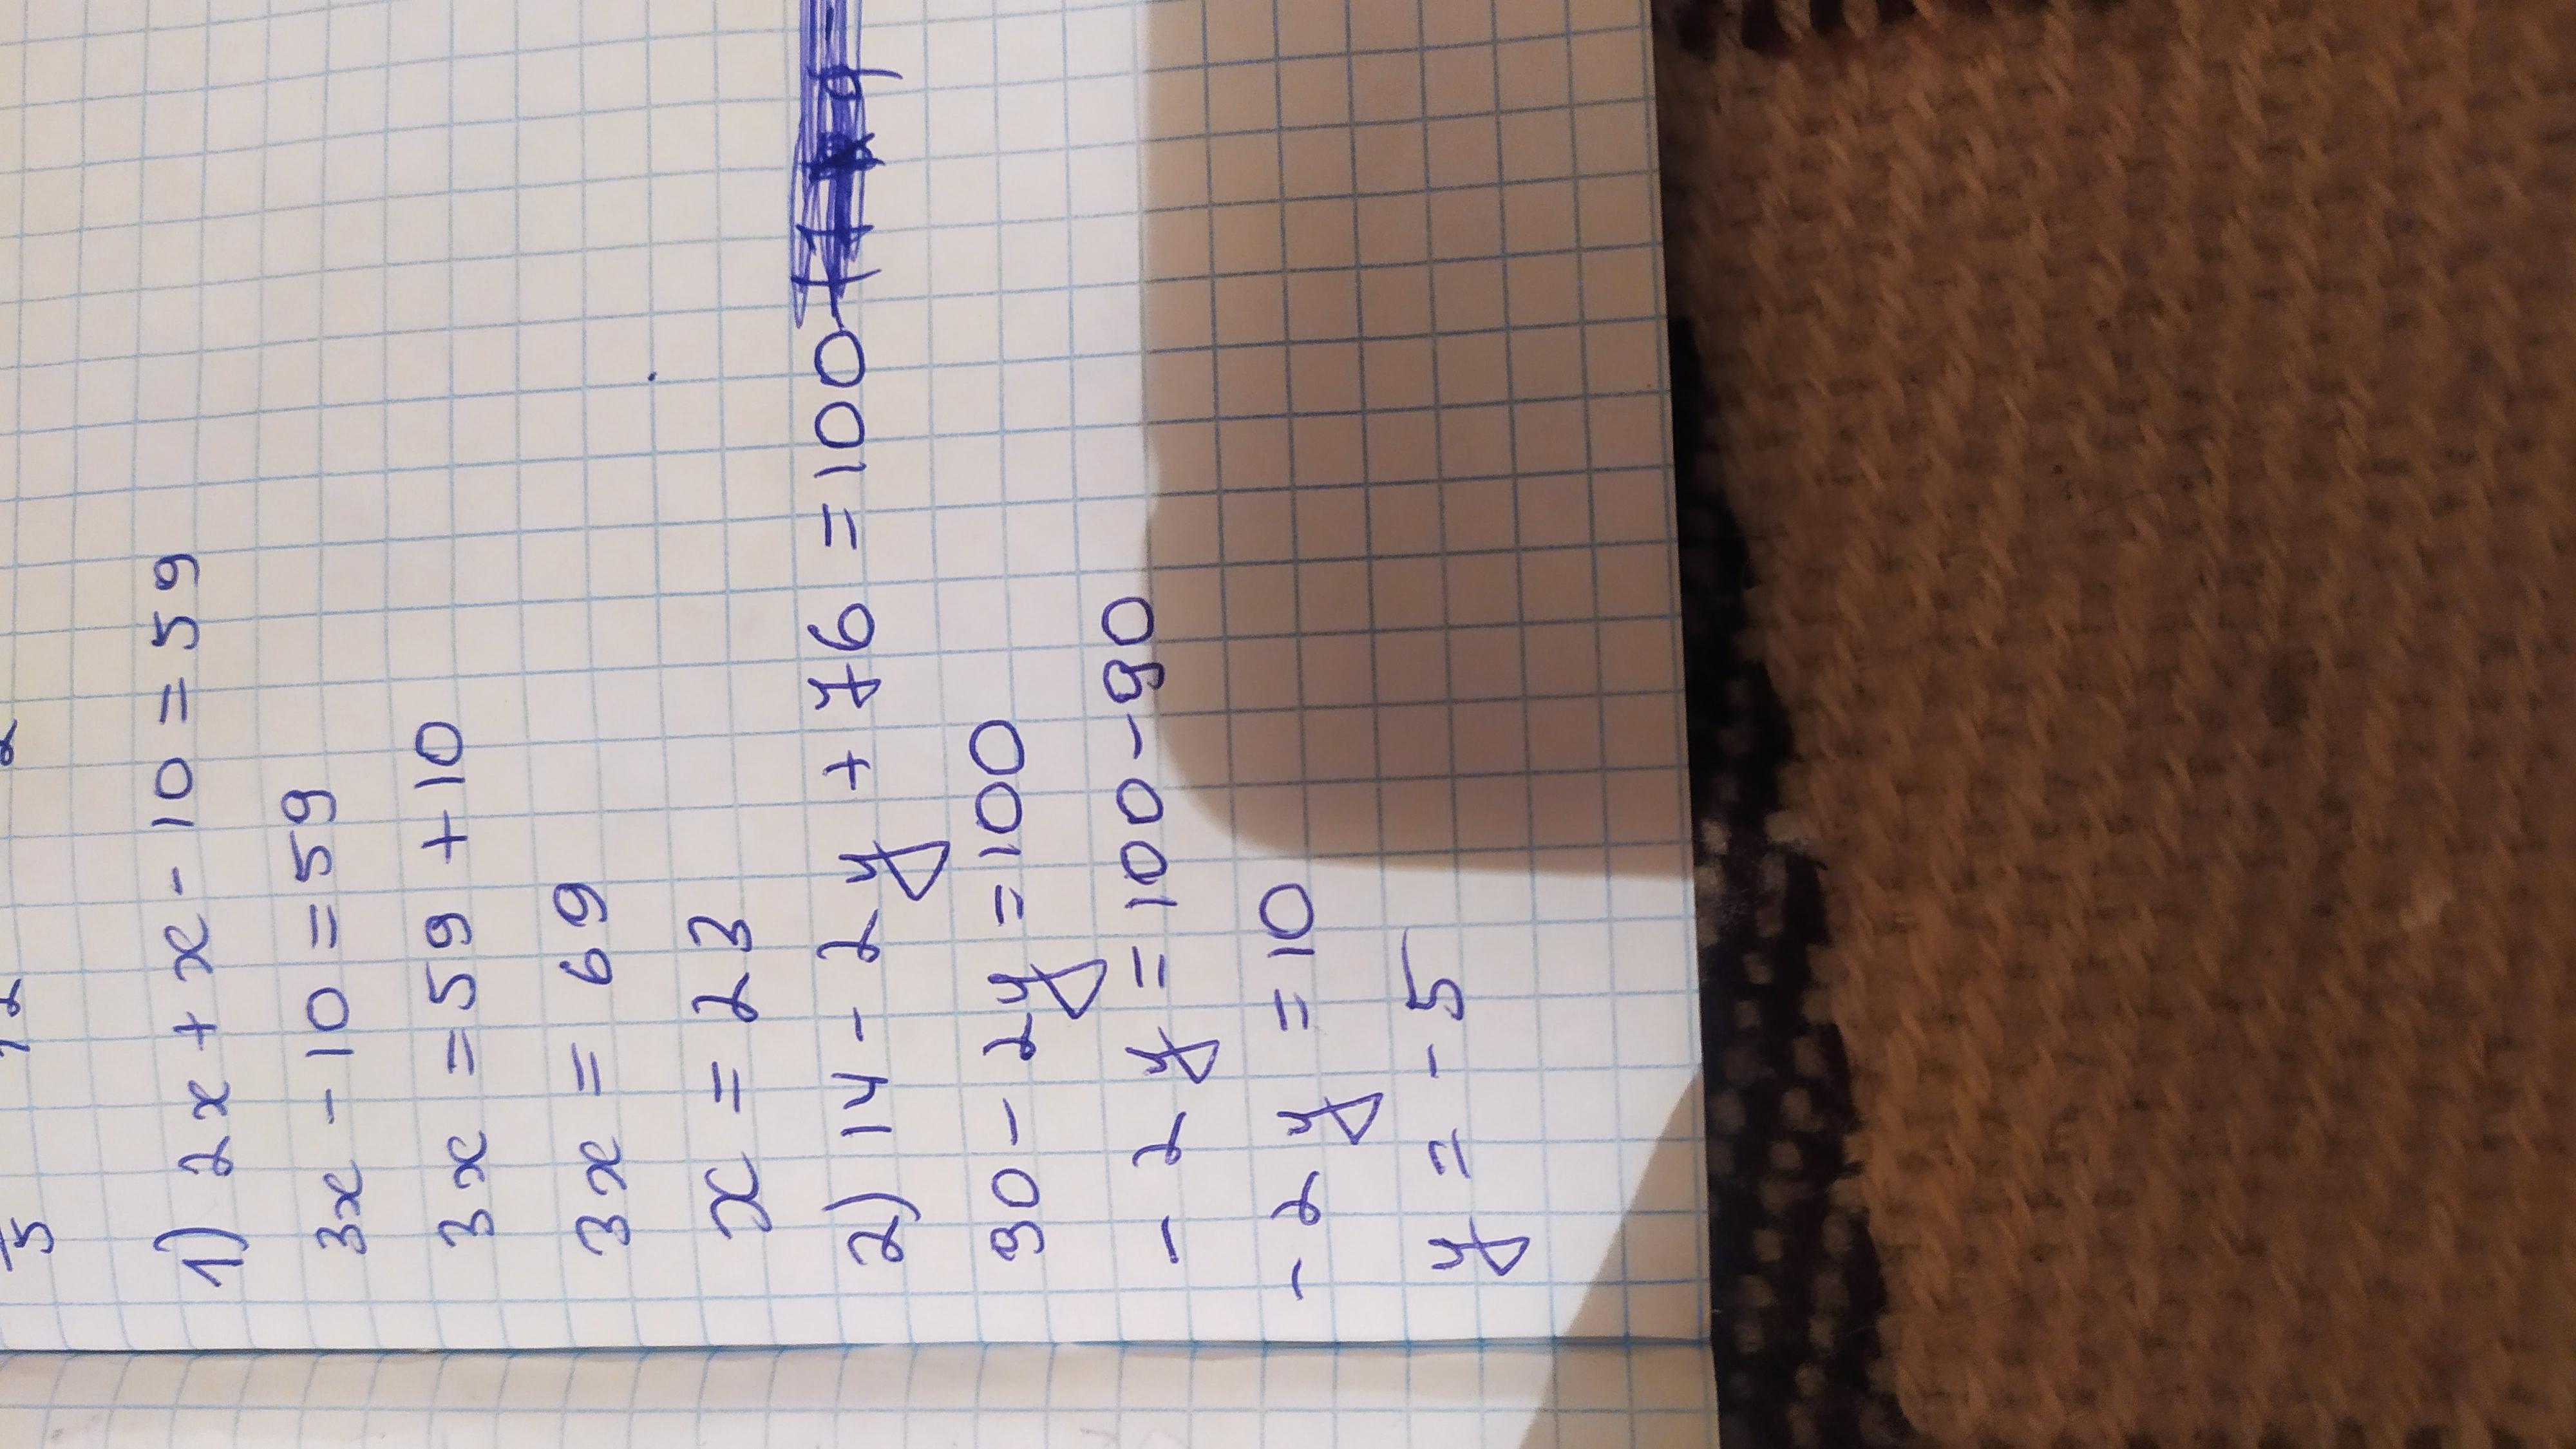 1) 2x + x - 10 = 59
3x - 10 = 59
3x = 59 + 10
3x = 69
x = 23
2) 14 - 2y + 76 = 100
90 - 2y = 100
- 2y = 100 - 90
- 2y = 10
y = - 5